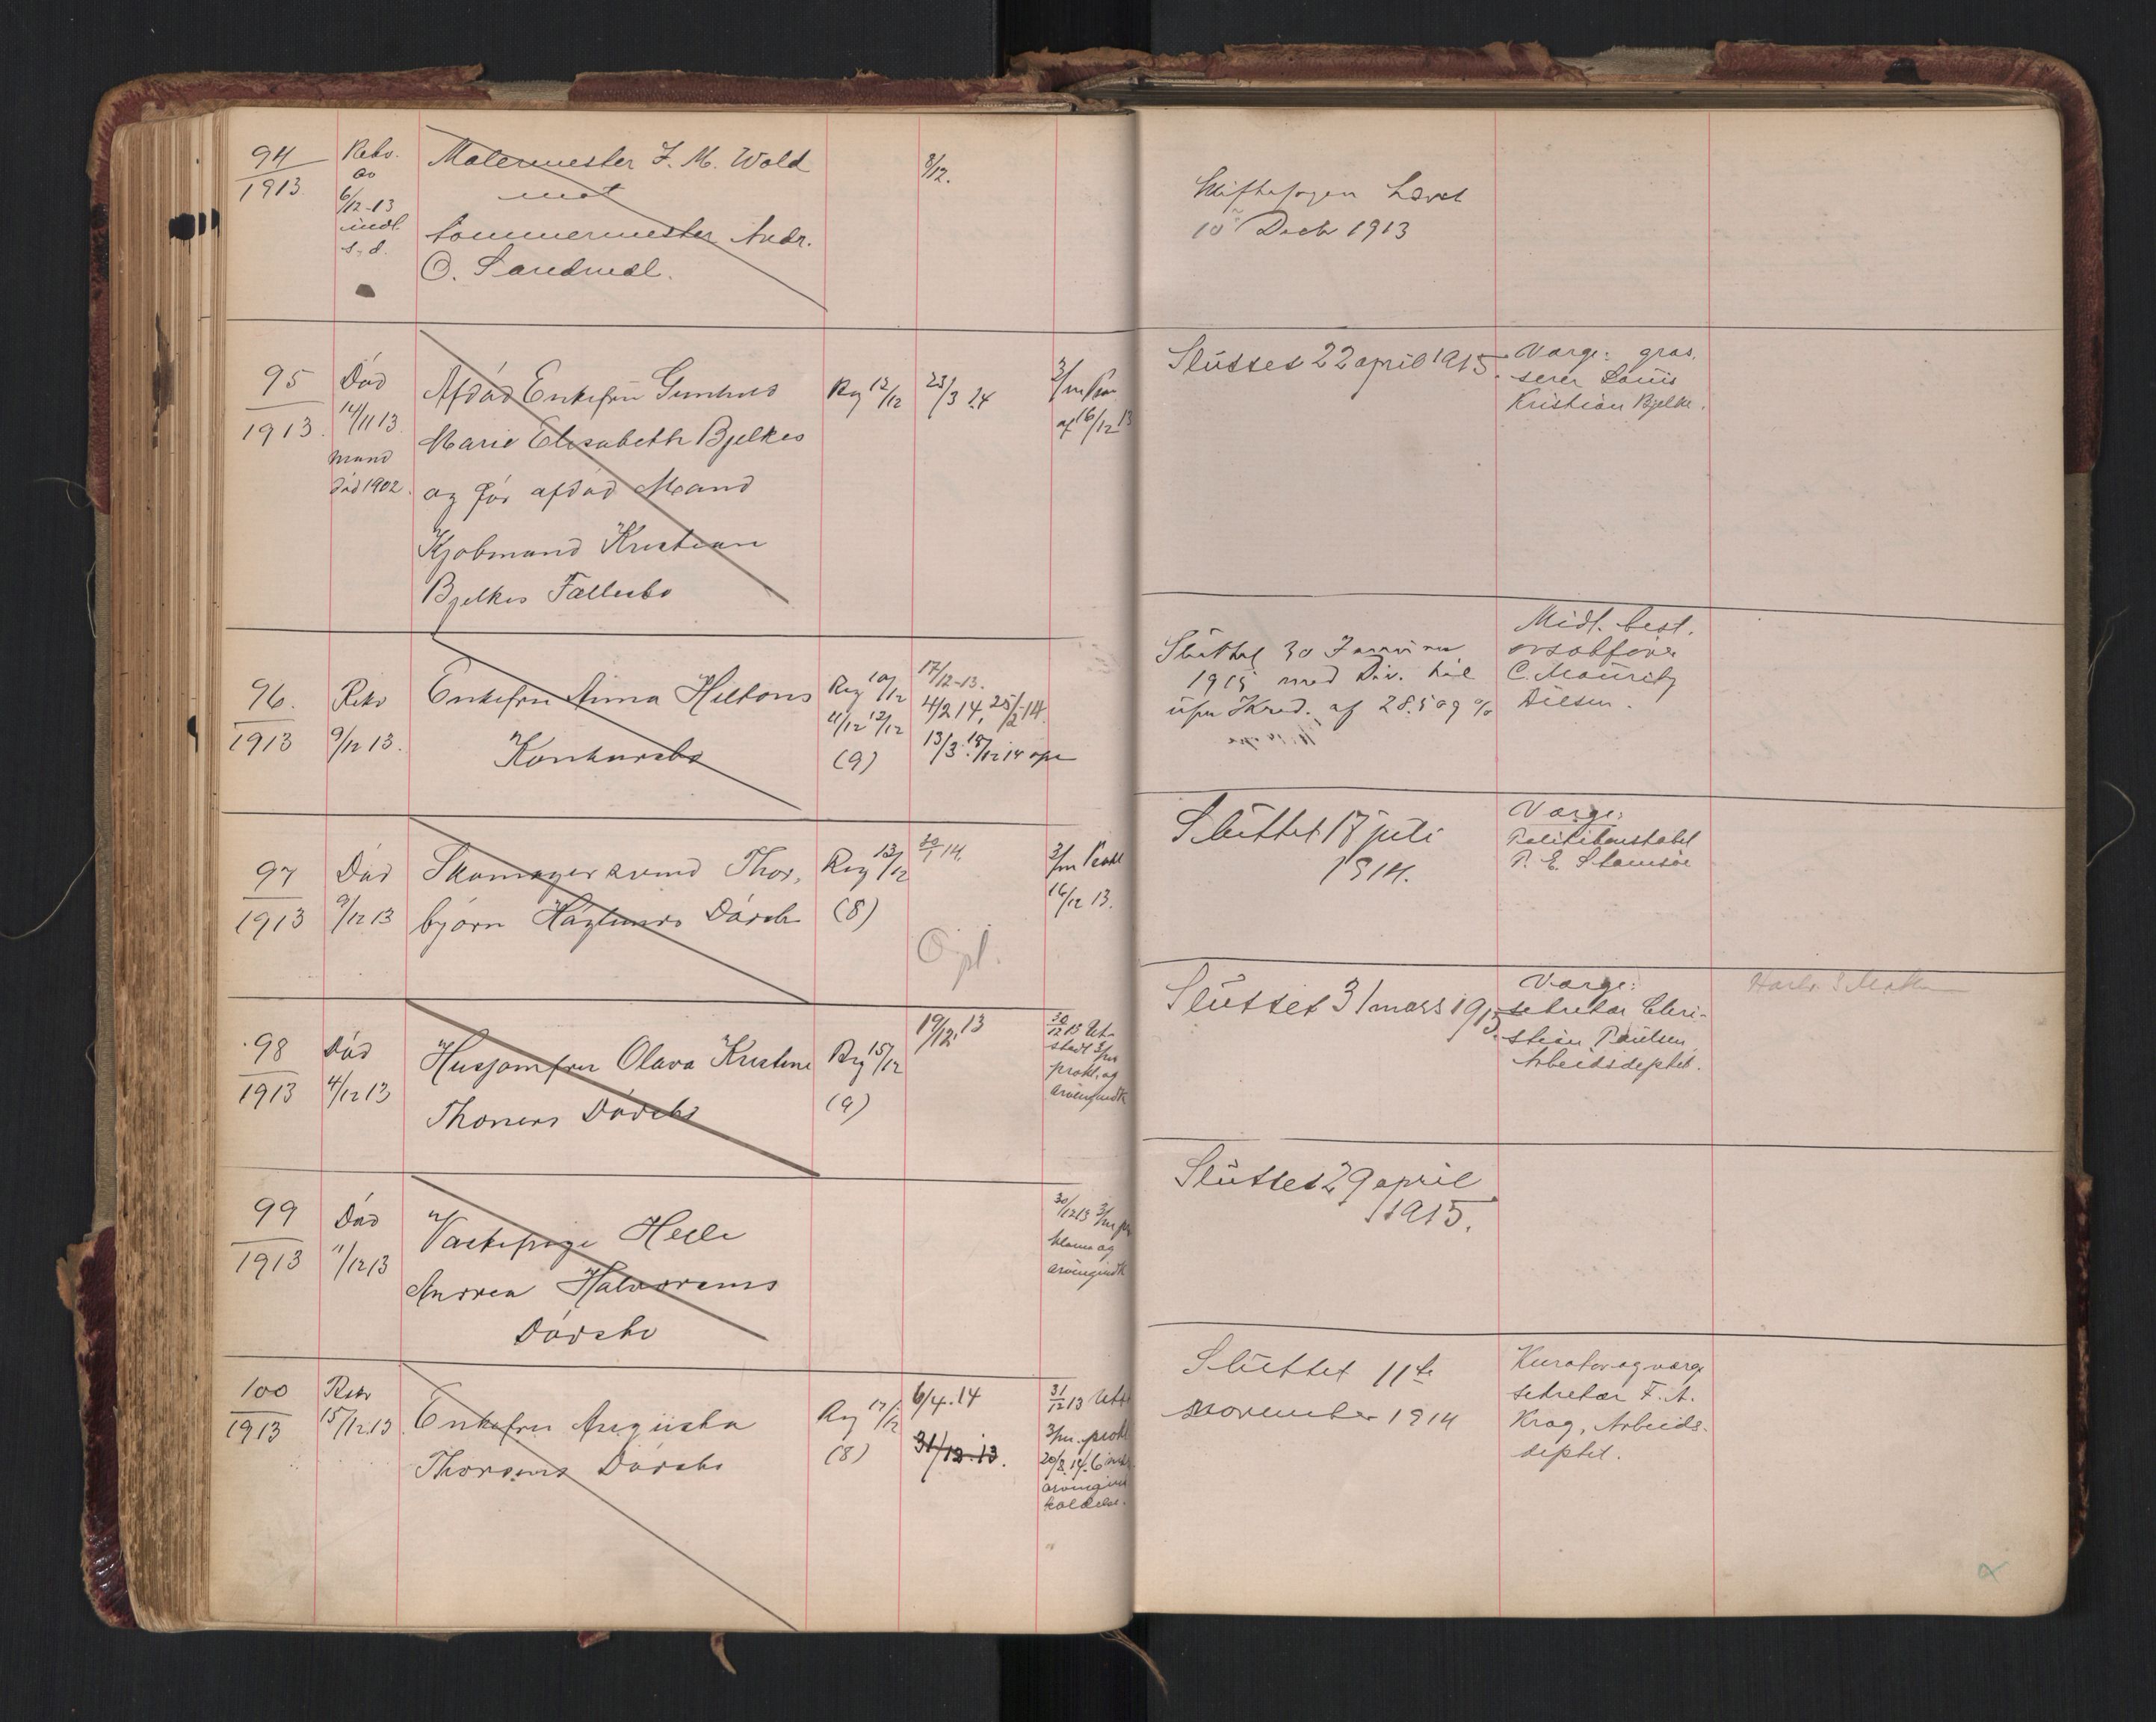 94
1913.
Rekv.
6/12-13
indl
s. d.
Malermester J. M. Wold
mot
tømmermester Andr.
O. Sandmæl.
8/12.
hævet
10 Decbr 1913
95
1913.
Död
14/11 13
Mand
död 1902.
Afdöd Enkefru Gunhild
Marie Elisabeth Bjelkes
og för afdöd Mand
Kjøbmand Kristian
Bjelkes Fællesbo
Reg 12/12
23/3 14
3/m Prok
af 16/12 13
Sluttet 22 april 1915.
Værge: gros.
serer Louis
Kristian Bjelke.
96.
1913
Rekv
9/12 13.
Enkefru Anna Hiltons
Konkursbo
Reg 10/12
11/12 12/12
(9)
17/12-13.
4/2 14, 25/2-14.
13/3. 18/12 14
Sluttet 30 Januar
1915 med Div. til
upr Kred. af 28.509 %
Midl. best.
C. Mouritz
97
1913
Död
9/12 13
Skomagersvend Thor-
björn Höglunds Dödsbo
Reg 13/12
(8)
30/1 14.
Opl.
3/m Prokl
16/12 13.
Sluttet 17 juli
1914.
Værge:
Politikonstabel
P. E. Stamsöe
98
1913
Död
4/12 13
Husjomfru Olava Kristine
Thorsens Dödsbo
Reg 15/12
(9)
19/12 13
30/12 13 Ut-
stedt 3/m
prokl. og
arveindk
Sluttet 31 mars 1915.
Værge:
sekretær Chri-
stian Paulsen,
Arbeidsdeptet.
99
1913
Död
11/12 13
Vaskepige Helle
Andrea Halvorsens
Dödsbo
30/12 13 3/m pr
klama og
arveindk
Sluttet 29 april
1915.
100
1913
Rekv
15/12 13
Enkefru Augusta
Thoresens Dödsbo
Reg 17/12
(8)
6/4.14
31/12.13.
31/12 13 Utst
3/m. prokl
20/2.14. 6
kaldelse.
Sluttet 11te
november 1914
Kurator og værge
sekretær F. A.
Krag, Arbeids-
deptet.